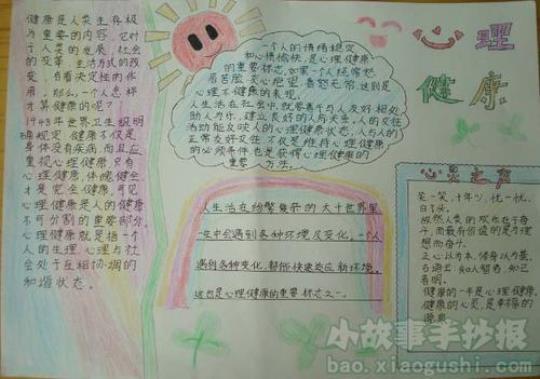 心理
健康
健康是人类生存极
为重要的内容，它对
于人类的发展，社会
的变革，生活方式的改
善，有着决定性的作
用，那么，一个人怎样
才算健康的呢？
1948年世界卫生组织明
确规定，健康不仅是
身体没有疾病，而且应
重视心理健康，只有
心理健康，体魄健全
才是完全健康，可见
心理健康是人的健康
不可分割的重要部分。
心理健康就是指一个
人的生理、心理与社
会处于互相协调的
和谐状态。
一个人的情绪稳定
和心情愉快，是心理健康
的重要标志，如果一个人经常愁
眉苦脸，灰心绝望，喜怒无常，这则是
心理不健康的表现。
人生活在社会中，就要善于与人友好相处
助人为乐，建立良好的人与关系，人的交往
活动能反映人的心理健康状态，人与人的
正常友好交往不仅是维持心理健康
的必须条件也是获得心理健康的
重要方法。
人生活在纷繁复杂的大千世界里
一生中会遇到各种环境及变化，一个人
遇到各种变化，帮你快速适应新环境。
这也是心理健康的重要标志之一。
心灵之声
笑一笑，十年少，忧一忧，
白了头。
故然人类的欢也在于奋
斗，而最有价值的是为理
想而奋斗。
健康的一半是心理健康，
健康的心灵，是幸福的
源泉
小故事手抄报
bao.xiaogushi.com